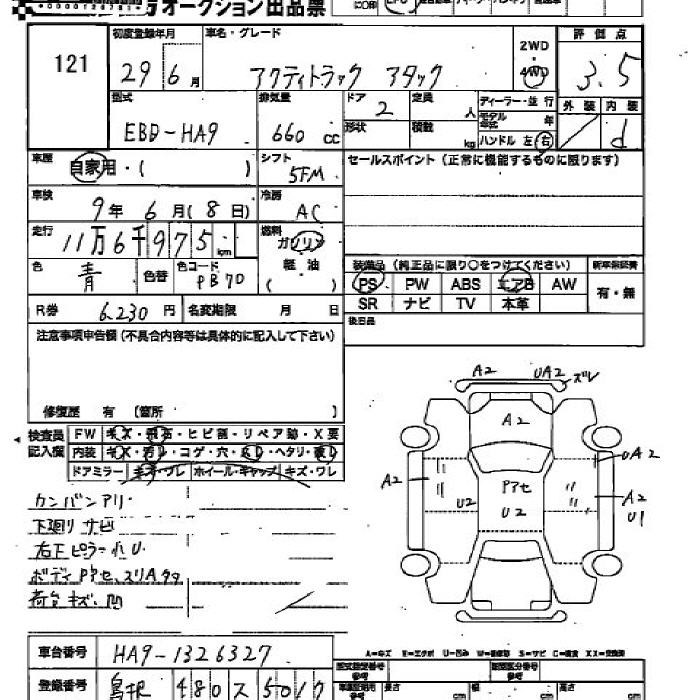 オークション出品票
121
初度登録年月
29 6 月
車名・グレード
アクティトラック アタック
2WD
・
4WD
評価点
3.5
型式
EBD-HA9
排気量
660 cc
ドア
2
定員
人
形状
積載
kg
ディーラー・並行
モデル年式 年
ハンドル 左 右
外装 内装
d
車歴
自家用・( )
シフト
5FM
セールスポイント(正常に機能するものに限ります)
車検
9年 6月(8日)
冷房
AC
走行
11万6千975km
燃料
ガソリン
軽・油
( )
色
青
色替
色コード
PB70
装備品(純正品に限り○をつけてください)
新車保証書
PS PW ABS エアB AW
SR ナビ TV 本革
有・無
R券
6.230 円
名変期限 月 日
後日品
注意事項申告欄(不具合内容等は具体的に記入して下さい)
修復歴 有 (箇所 )
検査員
記入欄
FW キズ・飛石・ヒビ割・リペア跡・X要
内装 キズ・汚レ・コゲ・穴・ヘタリ・
ドアミラー キズ・ワレ ホイール・キャップ キズ・ワレ
カンバンアリ
下廻りサビ
右下ピラー小U
ボディPアセ、スリAタタ
荷台キズ・凹
A2 UA2 ズレ
A2
UA2
A2 Pアセ A2
U2 U2 U1
車台番号
HA9-1326327
登録番号
島根 480 ス 50
A=キズ E=エクボ U=凹み W=補修跡 S=サビ C=腐食 XX=交換済
型式指定番号
類別区分番号
長さ cm 幅 cm 高さ cm